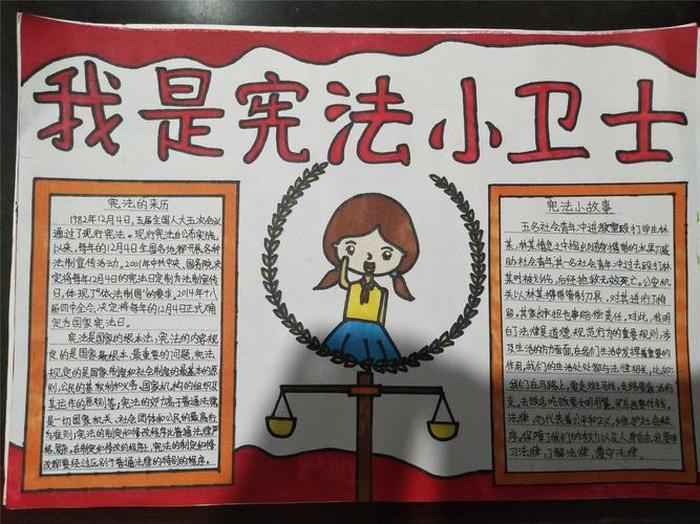 我是宪法小卫士
宪法的来历
1982年12月4日,五届全国人大五次会议
通过了现行宪法。现行宪法公布实施
以来,每年的12月4日全国各地都开展各种
法制宣传活动。2001年中共中央、国务院决
定将每年的12月4日的宪法日定制为法制宣传
日,体现了“依法制国”的要求。2014年十八
届四中全会,决定将每年的12月4日正式确
定为国家宪法日。
宪法是国家的根本法,宪法的内容规
定的是国家最根本、最重要的问题,宪法
规定的是国家制度和社会制度的最基本的原
则,公民的基本权利和义务,国家机构的组织及
其运作的原则等;宪法的效力高于普通法律
是一切国家机关、社会团体和公民的最高行
为准则;宪法的制定和修改程序比普通法律严
格,在制定和修改的程序上,宪法的制定和修
改都要经过区别于普通法律的特别的程序。
宪法小故事
五名社会青年冲进教室殴打学生林
某,林某情急之中掏出削水果的水果刀威
胁社会青年,其一名社会青年冲过去殴打林
某时被刺伤,后经抢救无效死亡。公安机
关以林某携带管制刀具,对其进行了拘
留,其家长和也事赔偿责任。对此,我明
白了法律是道德规范行为的重要规则,涉
及生活的方方面面,在我们生活中发挥着重要的
作用,我们的生活处处都与法律相关,比如:
我们在马路上,要走斑马线,走路要靠右
走。去饭店吃饭要文明用餐。买东西要付钱。
法律,也代表着公平和正义,维护社会秩
序,保障了我们的权力以及人身自由,我要学
习法律,了解法律,遵守法律。